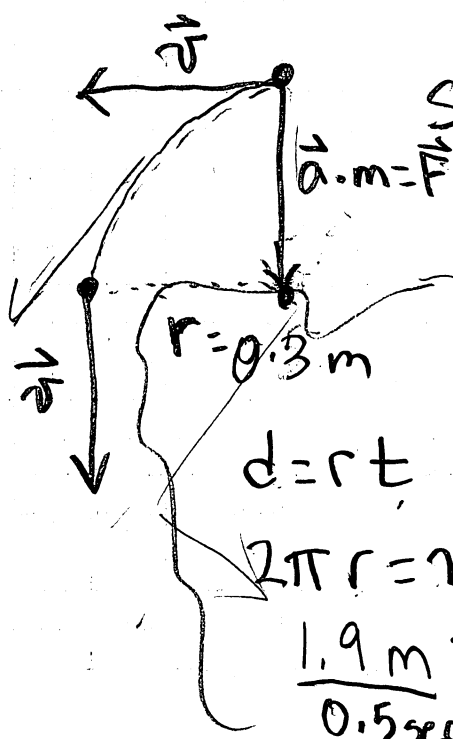 v⃗
S
a⃗·m=F⃗
r=0.3 m
v⃗
d=rt
2πr=
1.9 m
0.5 sec